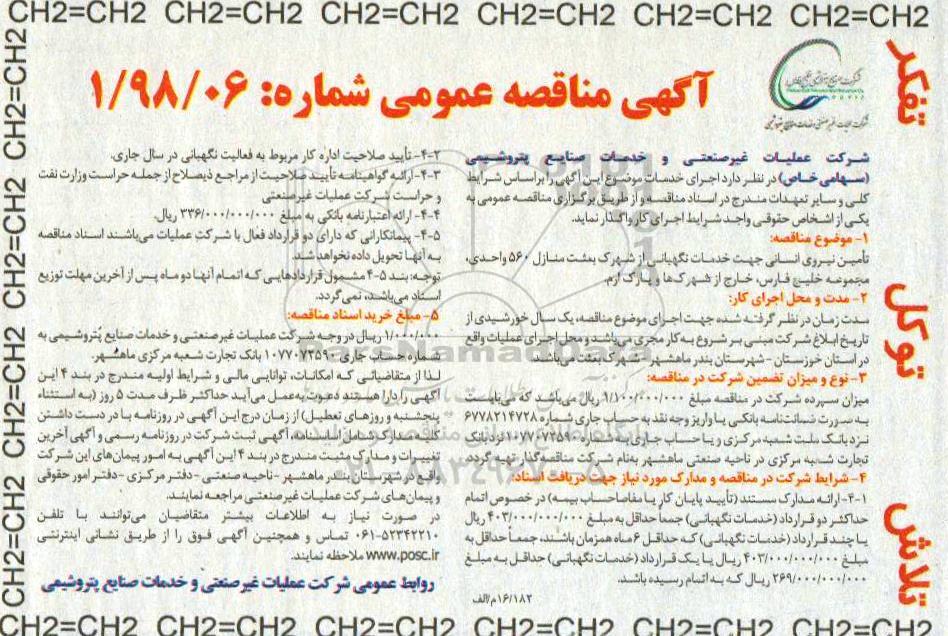 CH2=CH2 CH2=CH2 CH2=CH2 CH2=CH2 CH2=CH2 CH2=CH2
تفکر
توکل
تلاش
آگهی مناقصه عمومی شماره: ۱/۹۸/۰۶
شرکت عملیات غیرصنعتی و خدمات صنایع پتروشیمی
(سهامی خاص) در نظر دارد اجرای خدمات موضوع این آگهی را براساس شرایط
کلی و سایر تعهدات مندرج در اسناد مناقصه و از طریق برگزاری مناقصه عمومی به
یکی از اشخاص حقوقی واجد شرایط اجرای کار واگذار نماید.
۱- موضوع مناقصه:
تأمین نیروی انسانی جهت خدمات نگهبانی از شهرک بعثت منازل ۵۶۰ واحدی،
مجموعه خلیج فارس، خارج از شهرک‌ها و پارک ارم.
۲- مدت و محل اجرای کار:
مدت زمان در نظر گرفته شده جهت اجرای موضوع مناقصه، یک سال خورشیدی از
تاریخ ابلاغ شرکت مبنی بر شروع به کار مجری می‌باشد و محل اجرای عملیات واقع
در استان خوزستان - شهرستان بندر ماهشهر - شهرک بعثت می‌باشد.
۳- نوع و میزان تضمین شرکت در مناقصه:
میزان سپرده شرکت در مناقصه مبلغ ۹/۱۰۰/۰۰۰/۰۰۰ ریال می‌باشد که می‌بایست
به صورت ضمانت‌نامه بانکی یا واریز وجه نقد به حساب جاری شماره ۶۷۷۸۲۱۴۷۲۸
نزد بانک ملت شعبه مرکزی و یا حساب جاری شماره ۱۰۷۷۰۷۳۵۹۰ نزد بانک
تجارت شعبه مرکزی در ناحیه صنعتی ماهشهر به‌نام شرکت مناقصه‌گذار تهیه گردد
۴- شرایط شرکت در مناقصه و مدارک مورد نیاز جهت دریافت اسناد:
۴-۱- ارائه مدارک مستند (تأیید پایان کار یا مفاصاحساب بیمه) در خصوص اتمام
حداکثر دو قرارداد (خدمات نگهبانی) جمعاً حداقل به مبلغ ۴۰۳/۰۰۰/۰۰۰/۰۰۰ ریال
یا چند قرارداد (خدمات نگهبانی) که حداقل ۶ ماه همزمان باشند، جمعاً حداقل به
مبلغ ۴۰۳/۰۰۰/۰۰۰/۰۰۰ ریال یا یک قرارداد (خدمات نگهبانی) حداقل به مبلغ
۲۶۹/۰۰۰/۰۰۰/۰۰۰ ریال که به اتمام رسیده باشد.
۱۶/۱۸۲/م/الف
۴-۲- تأیید صلاحیت اداره کار مربوط به فعالیت نگهبانی در سال جاری.
۴-۳- ارائه گواهینامه تأیید صلاحیت از مراجع ذیصلاح از جمله حراست وزارت نفت
و حراست شرکت عملیات غیرصنعتی
۴-۴- ارائه اعتبارنامه بانکی به مبلغ ۳۳۶/۰۰۰/۰۰۰/۰۰۰ ریال.
۴-۵- پیمانکارانی که دارای دو قرارداد فعال با شرکت عملیات می‌باشند اسناد مناقصه
به آنها تحویل داده نخواهد شد.
توجه: بند ۵-۴ مشمول قراردادهایی که اتمام آنها دو ماه پس از آخرین مهلت توزیع
اسناد می‌باشد، نمی‌گردد.
۵- مبلغ خرید اسناد مناقصه:
۱/۰۰۰/۰۰۰ ریال در وجه شرکت عملیات غیرصنعتی و خدمات صنایع پتروشیمی به
شماره حساب جاری ۱۰۷۷۰۷۳۵۹۰ بانک تجارت شعبه مرکزی ماهشهر.
لذا از متقاضیانی که امکانات، توانایی مالی و شرایط اولیه مندرج در بند ۴ این
آگهی را دارا هستند دعوت به‌عمل می‌آید حداکثر ظرف مدت ۵ روز (به استثناء
پنجشنبه و روزهای تعطیل) از زمان درج این آگهی در روزنامه با در دست داشتن
کلیه مدارک شامل اساسنامه، آگهی ثبت شرکت در روزنامه رسمی و آگهی آخرین
تغییرات و مدارک مثبت مندرج در بند ۴ این آگهی به امور پیمان‌های این شرکت
واقع در شهرستان بندر ماهشهر - ناحیه صنعتی - دفتر مرکزی - دفتر امور حقوقی
و پیمان‌های شرکت عملیات غیرصنعتی مراجعه نمایند.
در صورت نیاز به اطلاعات بیشتر متقاضیان می‌توانند با تلفن
۰۶۱-۵۲۳۴۲۲۱۰ تماس و همچنین آگهی فوق را از طریق نشانی اینترنتی
www.posc.ir ملاحظه نمایند.
روابط عمومی شرکت عملیات غیرصنعتی و خدمات صنایع پتروشیمی
CH2=CH2 CH2=CH2 CH2=CH2 CH2=CH2 CH2=CH2 CH2=CH2
CH2=CH2 CH2=CH2 CH2=CH2 CH2=CH2